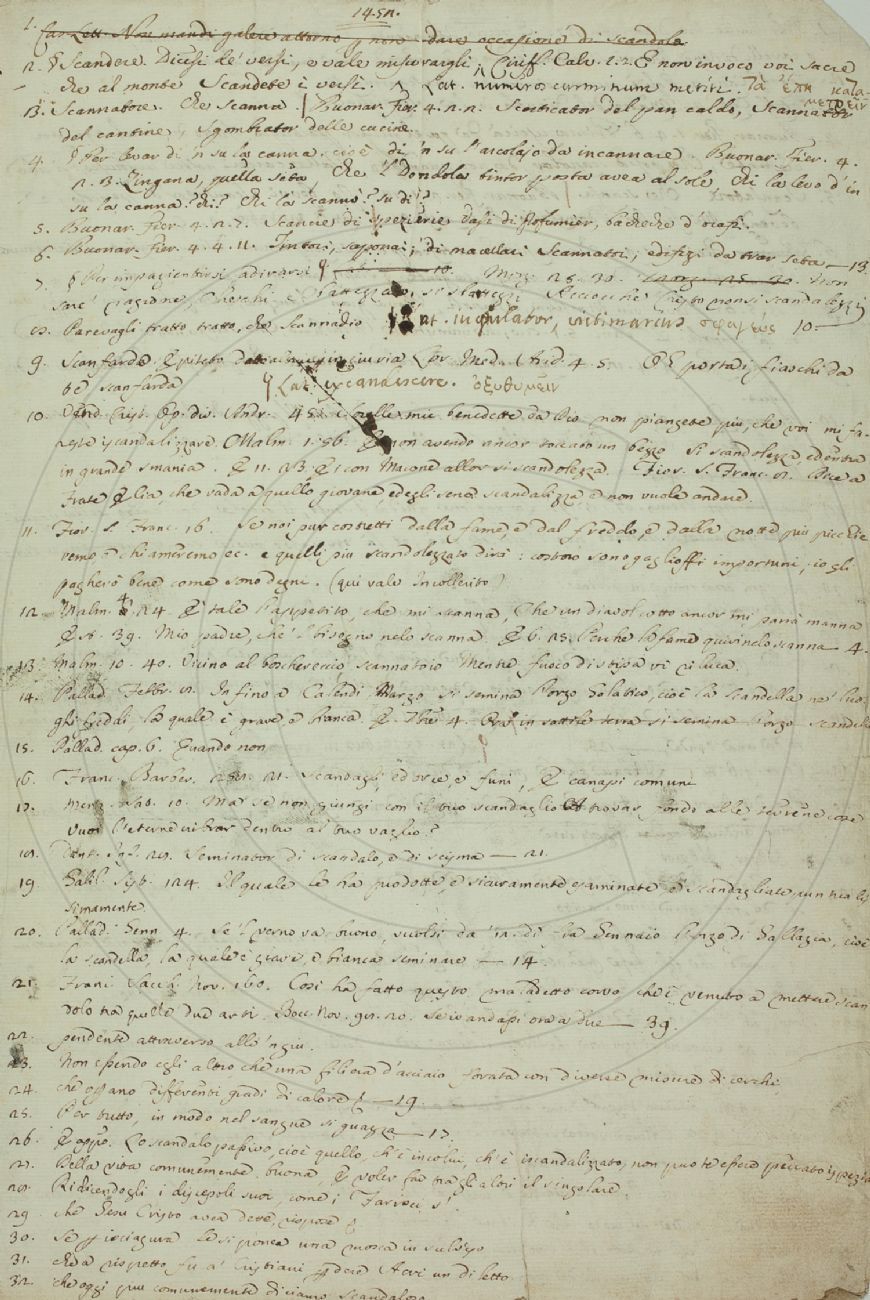 14. SA.
1. Cas. Lett. Non mandi galere attorno, non dare occasione di scandolo
2. § Scandere Dicesi de' versi, e vale misurargli; Ciriff. Calv. 1. 2. E non invoco voi sacre
che al monte Scandete i versi. Lat. numeros carminum metiri. τὰ ἔπη κατα-
μετρεῖν
3. Scannatore. Che scanna Buonar. Fier. 4. Scorticator del pan caldo, Scannator
del cantine, Sgombrator delle cucine.
4. § Per levar di 'n su la canna. cioè di 'n su l'arcolajo da incannare. Buonar. Fier. 4.
Zingana, quella seta Che 'l Dondola tintor posta avea al sole, Chi la levò d'in
su la canna? di? Chi la scannò? su di?
5. Buonar. Fier. 4. 2. 7. Scancie di spezierie, vasi di profumier, bacheche d'orafi.
6. Buonar. Fier. 4. 4. 11. Tintori, saponai; di macellari Scannatoi; edifizi da trar seta — 13
7. § Per impazientirsi, adirarsi Morg. 28. 30. Non
sare' ragione, Cherchi è battezzato, si sbattezzi Acciocchè Cristo non si scandalezzi
8. Parevagli tratto tratto, che Scannadio Lat. jugulator, victimarius σφαγεύς 10. —
9. Scanfarda. Epiteto dato altrui in ingiuria Lor. Med. Arid. 4. 5. O E porta i fiaschi da
te scanfarda § Lat. excandescere. ὀξυθυμεῖν
10. Vend. Crist. Op. div. Andr. 45. Sirocchie mie benedette da Dio, non piangete più, che voi mi fa-
reste iscandalizzare Malm. 1. 56. E non avendo ancor toccato un bezzo Si scandolezza, ed entra
in grande smania. E 11. 23. E con Macone allor si scandolezza. Fior. S. Franc. Dice a
Frate Elia, che vada a quello giovane, ed egli se ne scandalizza, e non vuole andare.
11. Fior. S. Franc. 16. Se noi pur costretti dalla fame, e dal freddo, e dalla notte più picchie
remo, e chiameremo ec. e quelli più scandolezzato dirà: costoro sono gaglioffi importuni, io gli
pagherò bene come sono degni. (qui vale Incollerito)
12. Malm. 4. 24. E tale l'appetito, che mi scanna, Che un diavol cotto ancor mi parrà manna
E 39. Mio padre, che 'l bisogno ne lo scanna. E 6. 25. Perchè la fame quivi ne lo scanna — 4.
13. Malm. 10. 40. Vicino al boschereccio scannatoio Mentre fuoco di stipa vi riluca.
14. Pallad. Febbr. In fino a Calendi Marzo si semina l'orzo Galatico, cioè la scandella ne' luo
ghi freddi, la quale è grave, e bianca. E 4. Ora in sottile terra si semina l'orzo scandella
15. Pallad. cap. 6. Quando non
16. Franc. Barber. Scandagli, ed orce, e funi, E canapi comuni
17. Menz. sat. 10. Ma se non giungi con il tuo scandaglio A trovar fondo alle terrene cose
Vuoi l'eterne vibrar dentro al tuo vaglio?
18. Dant. Inf. 28. Seminator di scandalo, e di scisma — 21.
19. Galil. Sist. 124. Il quale le ha prodotte, e sicuramente esaminate e scandagliate puntualis
simamente.
20. Pallad. Genn. 4. Se 'l verno va buono, vuolsi da di fra Gennaio l'orzo di Gallazia, cioè
la scandella, la quale è grave, e bianca seminare — 14.
21. Franc. Sacch. Nov. 160. Così ha fatto questo maladetto corvo che è venuto a mettere scan
dolo tra quelle due arti. Bocc. Nov. 98. 20. Se io andassi ora a due — 39.
22. pendente attraverso all'ingiù.
23. Non essendo egli altro che una filiera d'acciaio forata con diverse misure di cerchi,
24. che offano differenti gradi di calore § — 19.
25. Per tutto, in modo nel sangue si guazza — 17.
26. E appo. Lo scandalo passivo, cioè quello, ch'è in colui, ch'è iscandalizzato, non puote essere peccato ispezia
27. Bella vita comunemente buona, e voler far tra gli altri il singolare.
28. Ridicendogli i discepoli suoi, come i Farisei s'
29. che Gesù Cristo avea dette, rispose §
30. Se p isciagura le si ponea una mosca in sul viso
31. che a rispetto fu a' Cristiani perdere Acri un diletto
32. che oggi più comunemente diciamo scandaloso